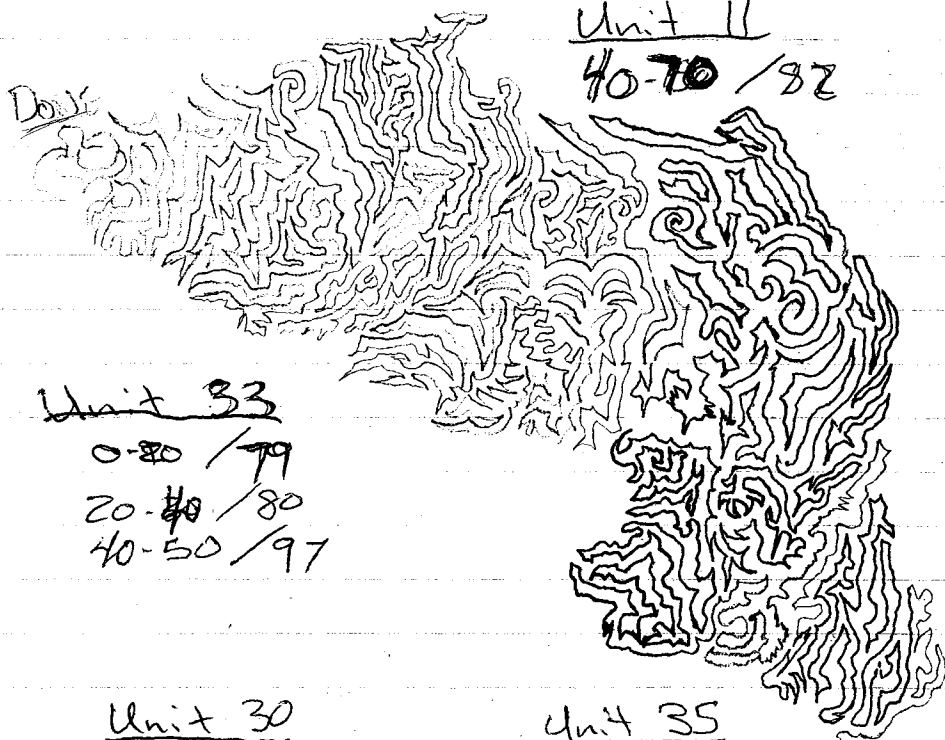 Unit 11
40-70 /82
Unit 33
0-20 /79
20-40 /80
40-50 /97
Unit 30
Unit 35